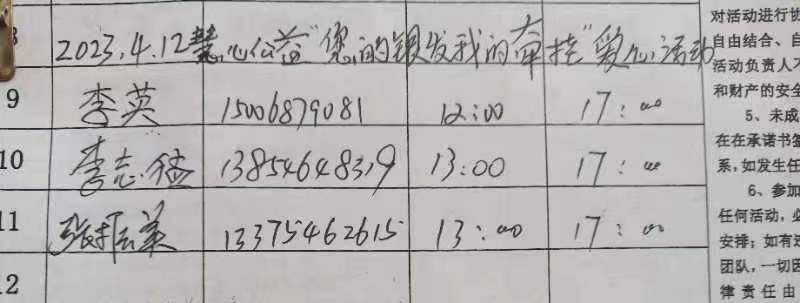 8
2023.4.12慧心公益"您的银发我的牵挂"爱心活动
9 李英 15006879081 12:00 17:00
10 李志猛 13854648319 13:00 17:00
11 张振美 13375462615 13:00 17:00
12
对活动进行协
自由结合、自
活动负责人不
和财产的安全
5、未成
在在承诺书签
系,如发生任
6、参加
任何活动,必
安排;如有违
团队,一切因
律责任由